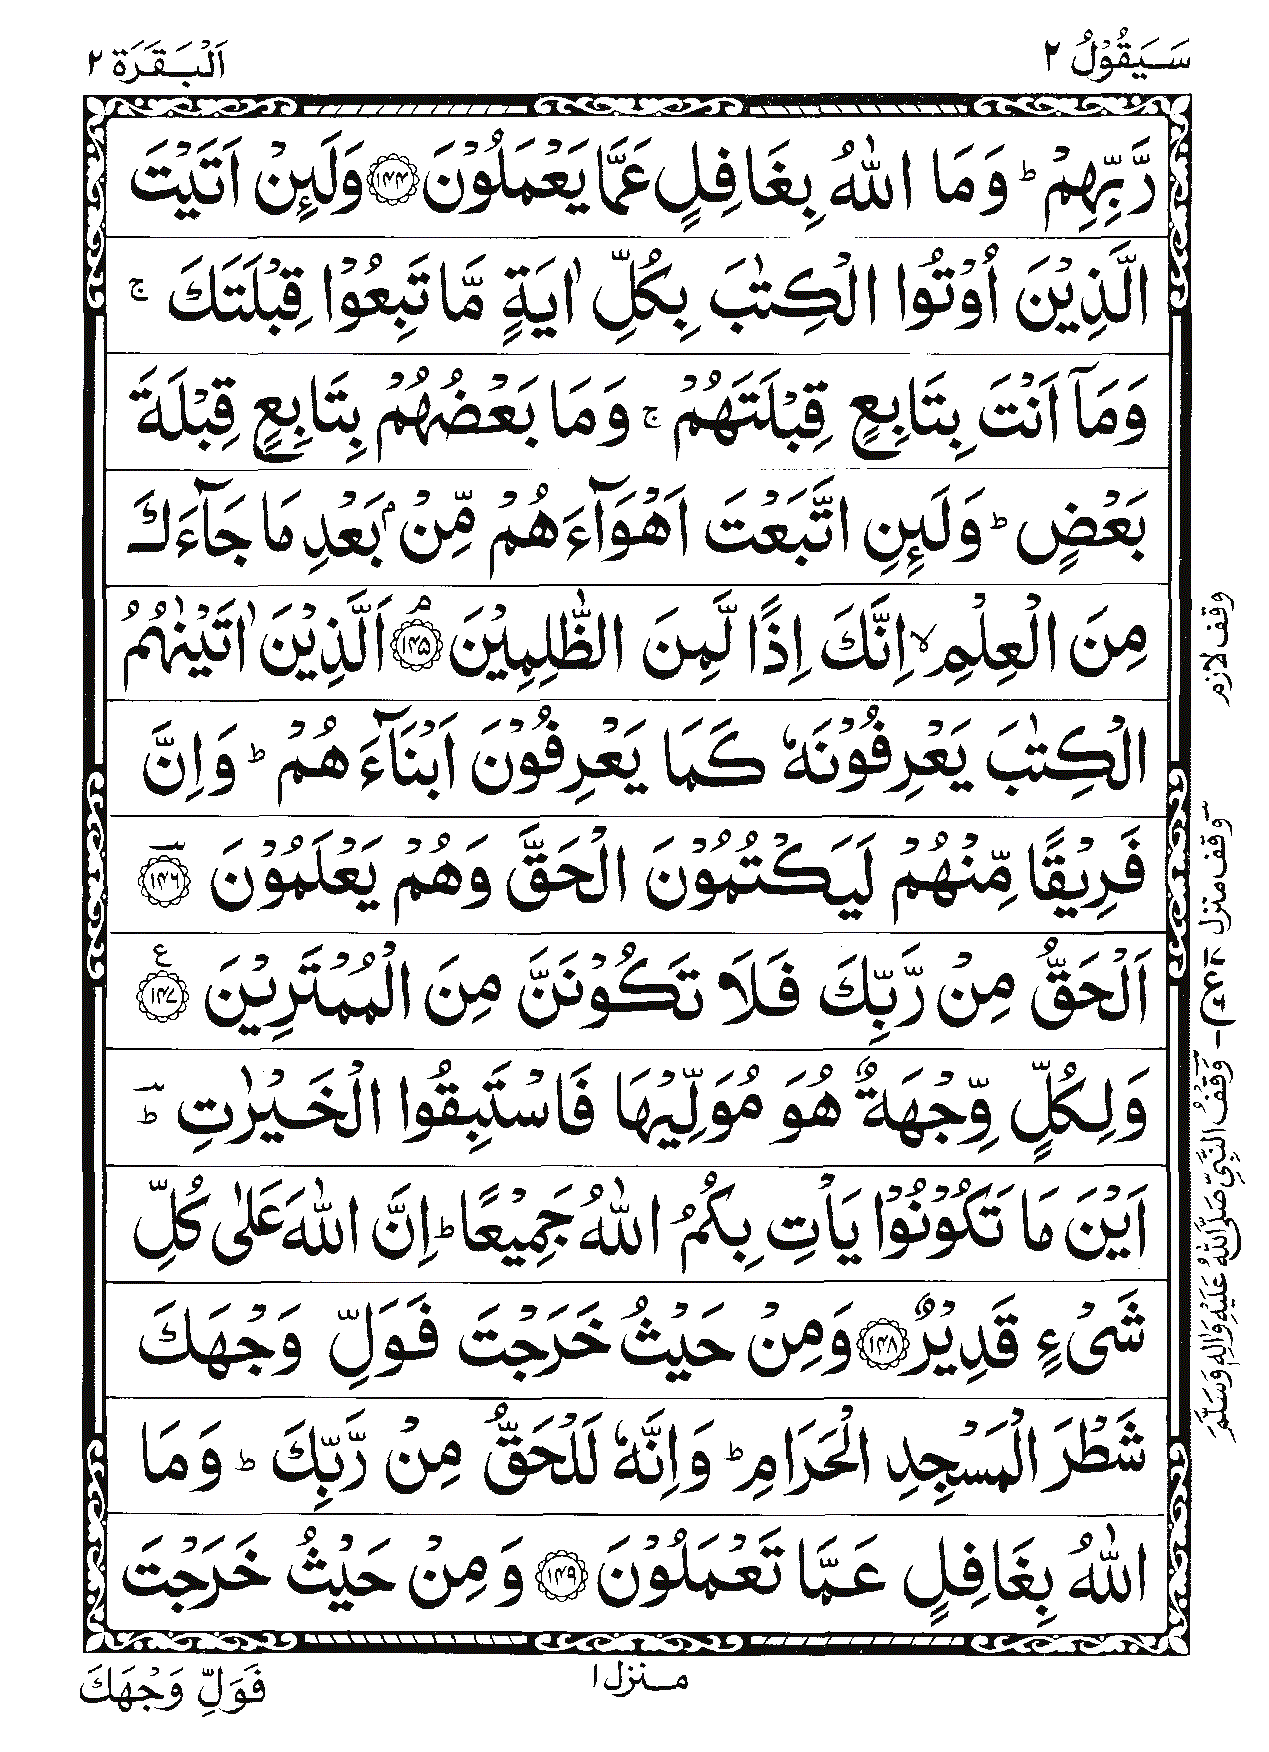 سَيَقُوْلُ ٢
اَلْبَقَرَة ٢
رَّبِّهِمْ ؕ وَ مَا اللّٰهُ بِغَافِلٍ عَمَّا يَعْمَلُوْنَ ﴿۱۴۴﴾ وَلَىِٕنْ اَتَيْتَ
الَّذِيْنَ اُوْتُوا الْكِتٰبَ بِكُلِّ اٰيَةٍ مَّا تَبِعُوْا قِبْلَتَكَ ۚ
وَمَاۤ اَنْتَ بِتَابِعٍ قِبْلَتَهُمْ ۚ وَمَا بَعْضُهُمْ بِتَابِعٍ قِبْلَةَ
بَعْضٍ ؕ وَلَىِٕنِ اتَّبَعْتَ اَهْوَآءَهُمْ مِّنْۢ بَعْدِ مَا جَآءَكَ
مِنَ الْعِلْمِ ۙ اِنَّكَ اِذًا لَّمِنَ الظّٰلِمِيْنَ ﴿۱۴۵﴾ۘ اَلَّذِيْنَ اٰتَيْنٰهُمُ
الْكِتٰبَ يَعْرِفُوْنَهٗ كَمَا يَعْرِفُوْنَ اَبْنَآءَهُمْ ؕ وَاِنَّ
فَرِيْقًا مِّنْهُمْ لَيَكْتُمُوْنَ الْحَقَّ وَهُمْ يَعْلَمُوْنَ ﴿۱۴۶﴾ؔ
اَلْحَقُّ مِنْ رَّبِّكَ فَلَا تَكُوْنَنَّ مِنَ الْمُمْتَرِيْنَ ﴿۱۴۷﴾ ع
وَلِكُلٍّ وِّجْهَةٌ هُوَ مُوَلِّيْهَا فَاسْتَبِقُوا الْخَيْرٰتِ ؕؔ
اَيْنَ مَا تَكُوْنُوْا يَاْتِ بِكُمُ اللّٰهُ جَمِيْعًا ؕ اِنَّ اللّٰهَ عَلٰى كُلِّ
شَىْءٍ قَدِيْرٌ ﴿۱۴۸﴾ وَمِنْ حَيْثُ خَرَجْتَ فَوَلِّ وَجْهَكَ
شَطْرَ الْمَسْجِدِ الْحَرَامِ ؕ وَاِنَّهٗ لَلْحَقُّ مِنْ رَّبِّكَ ؕ وَمَا
اللّٰهُ بِغَافِلٍ عَمَّا تَعْمَلُوْنَ ﴿۱۴۹﴾ وَمِنْ حَيْثُ خَرَجْتَ
وقف لازم
وقف منزل
وَقْفُ النَّبِيِّ صَلَّى اللّٰهُ عَلَيْهِ وَاٰلِهٖ وَسَلَّمَ
منزل ۱
فَوَلِّ وَجْهَكَ